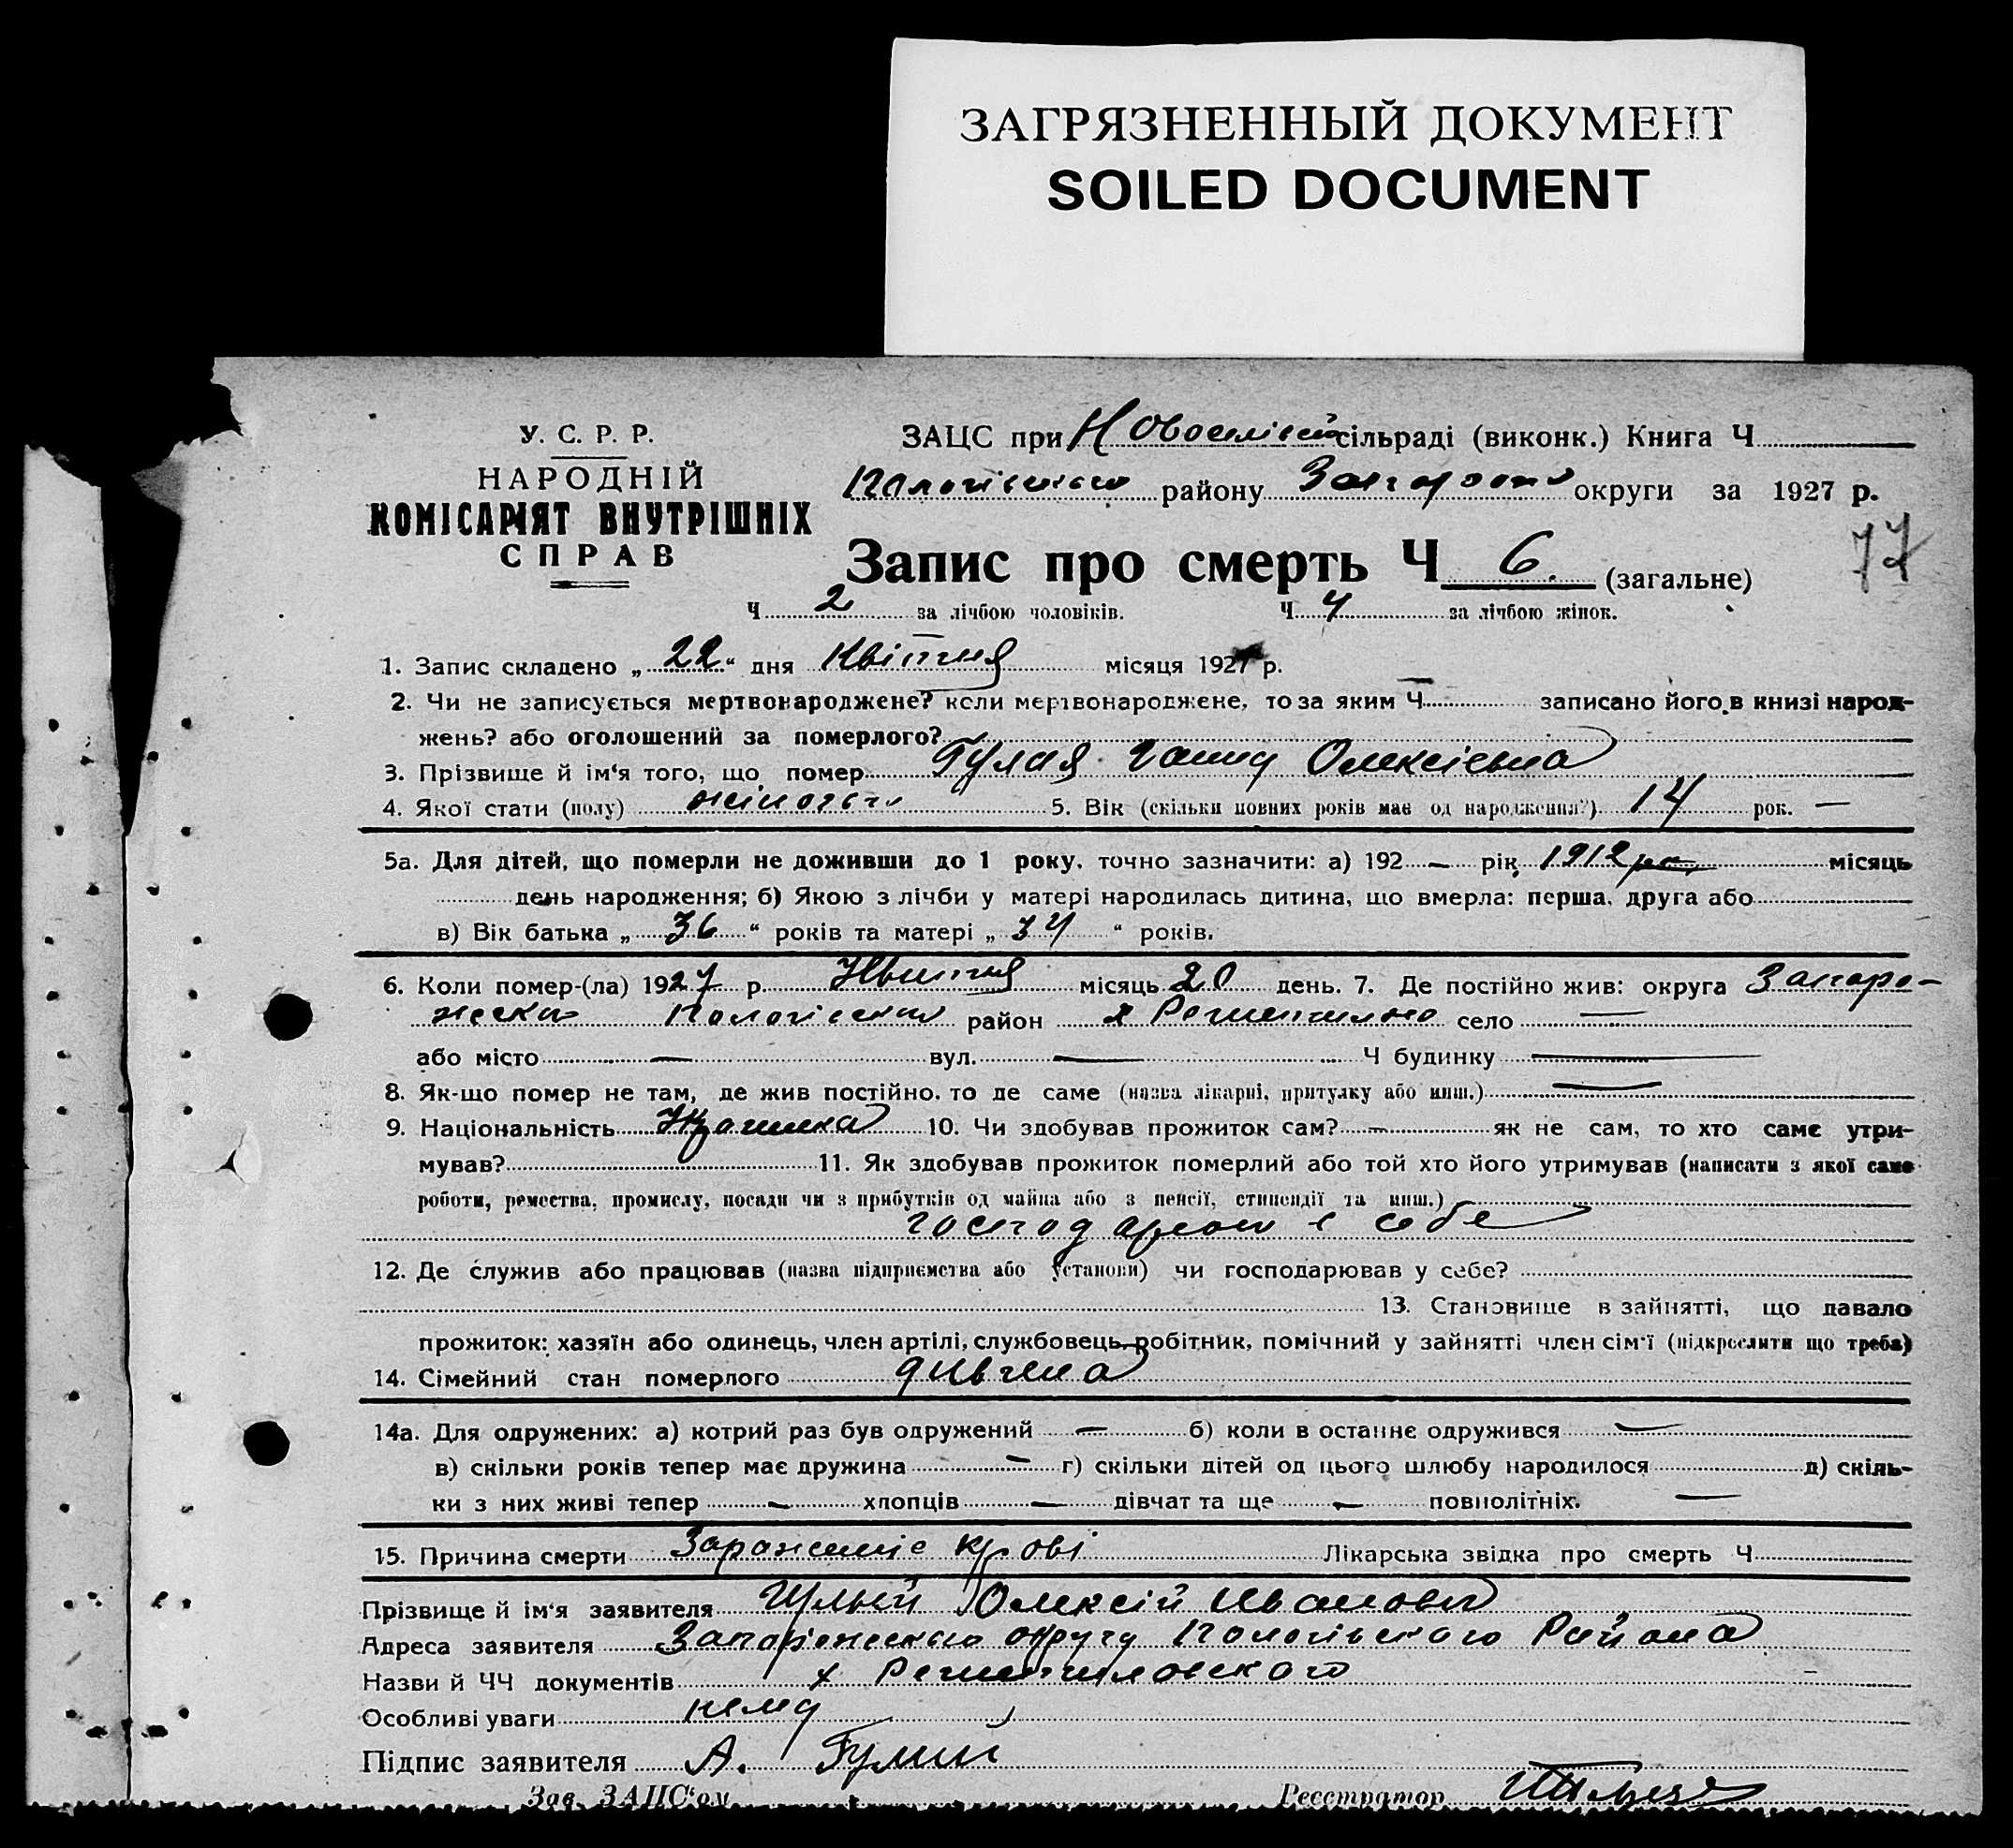 ЗАГРЯЗНЕННЫЙ ДОКУМЕНТ
SOILED DOCUMENT
У. С. Р. Р.
НАРОДНІЙ
КОМІСАРІЯТ ВНУТРІШНІХ
СПРАВ
ЗАЦС при сільраді (виконк.) Книга Ч
району округи за 1927 р.
77
Запис про смерть Ч 6. (загальне)
Ч 2 за лічбою чоловіків. Ч 4 за лічбою жінок.
1. Запис складено „ 22 “ дня Квітня місяця 1927 р.
2. Чи не записується мертвонароджене? коли мертвонароджене, то за яким Ч — записано його в книзі народ-
жень? або оголошений за померлого?
3. Прізвище й ім‘я того, що помер Гулая Ганна Олексієвна
4. Якої стати (полу) 5. Вік (скільки повних років має од народження?) 14 рок. —
5а. Для дітей, що померли не доживши до 1 року, точно зазначити: а) 192 — рік 1912 ро. місяць
день народження; б) Якою з лічби у матері народилась дитина, що вмерла: перша, друга або
в) Вік батька „ 36 “ років та матері „ 34 “ років.
6. Коли помер-(ла) 1927 р. Квитня місяць 20 день. 7. Де постійно жив: округа Запоро-
жеска Пологівский район х село —
або місто — вул. — Ч будинку —
8. Як-що помер не там, де жив постійно, то де саме (назва лікарні, притулку або инш.) —
9. Національність 10. Чи здобував прожиток сам? — як не сам, то хто саме утри-
мував? 11. Як здобував прожиток померлий або той хто його утримував (написати з якої саме
роботи, ремества, промислу, посади чи з прибутків од майна або з пенсії, стипендії та инш.)
у себе
12. Де служив або працював (назва підприємства або установи) чи господарював у себе?
13. Становище в зайнятті, що давало
прожиток: хазяїн або одинець, член артілі, службовець, робітник, помічний у зайнятті член сім‘ї (підкреслити що треба)
14. Сімейний стан померлого дивчина
14а. Для одружених: а) котрий раз був одружений — б) коли в останнє одружився —
в) скільки років тепер має дружина — г) скільки дітей од цього шлюбу народилося д) скіль-
ки з них живі тепер — хлопців — дівчат та ще — повнолітніх. —
15. Причина смерти Заражение крові Лікарська звідка про смерть Ч
Прізвище й ім‘я заявителя Гулый Олексій Иванович
Адреса заявителя Запорожеська округу Пологівского Района
Назви й ЧЧ документів х
Особливі уваги нема
Підпис заявителя А. Гулий
Зав. ЗАЦС‘ом Реєстратор